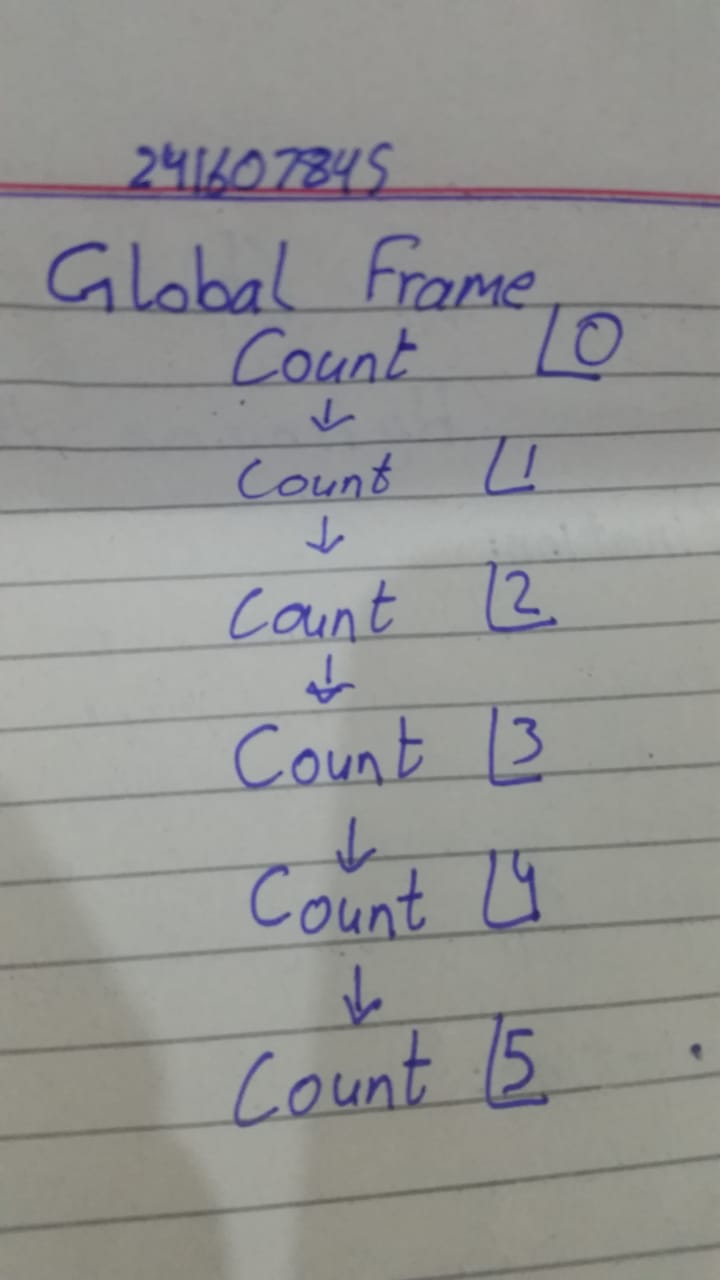 241607845
Global Frame
Count 0
↓
Count 1
↓
Count 2
↓
Count 3
↓
Count 4
↓
Count 5